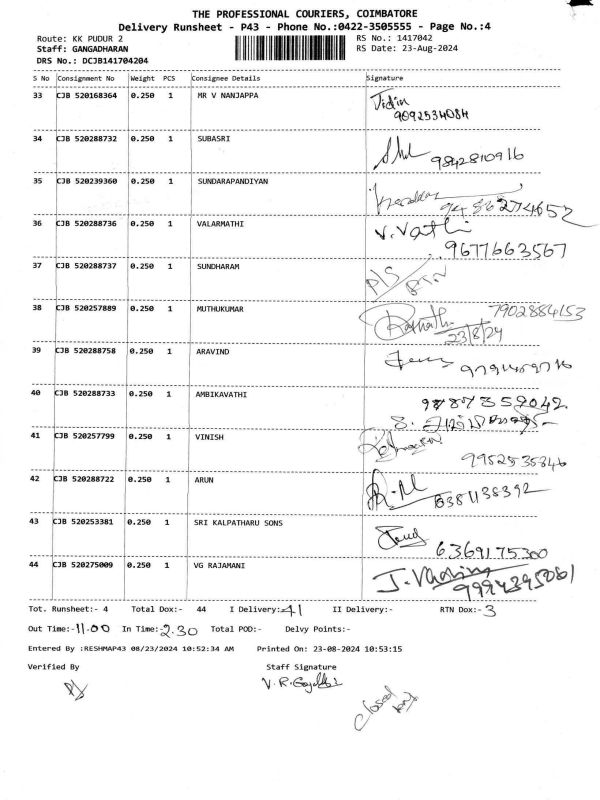 THE PROFESSIONAL COURIERS, COIMBATORE
Delivery Runsheet - P43 - Phone No.:0422-3505555 - Page No.:4
Route: KK PUDUR 2 RS No.: 1417042
Staff: GANGADHARAN RS Date: 23-Aug-2024
DRS No.: DCJB141704204
S No Consignment No Weight PCS Consignee Details Signature
33 CJB 520168364 0.250 1 MR V NANJAPPA
9092534084
34 CJB 520288732 0.250 1 SUBASRI
9842810916
35 CJB 520239360 0.250 1 SUNDARAPANDIYAN
36 CJB 520288736 0.250 1 VALARMATHI V. Vathi
9677663567
37 CJB 520288737 0.250 1 SUNDHARAM P/S
RTN
38 CJB 520257889 0.250 1 MUTHUKUMAR 7902884153
23/8/24
39 CJB 520288758 0.250 1 ARAVIND
40 CJB 520288733 0.250 1 AMBIKAVATHI
41 CJB 520257799 0.250 1 VINISH
9952535846
42 CJB 520288722 0.250 1 ARUN
6381138392
43 CJB 520253381 0.250 1 SRI KALPATHARU SONS
6369175300
44 CJB 520275009 0.250 1 VG RAJAMANI
9994395081
Tot. Runsheet:- 4 Total Dox:- 44 I Delivery:- 41 II Delivery:- RTN Dox:- 3
Out Time:- 11.00 In Time:- 2.30 Total POD:- Delvy Points:-
Entered By :RESHMAP43 08/23/2024 10:52:34 AM Printed On: 23-08-2024 10:53:15
Verified By Staff Signature
closed